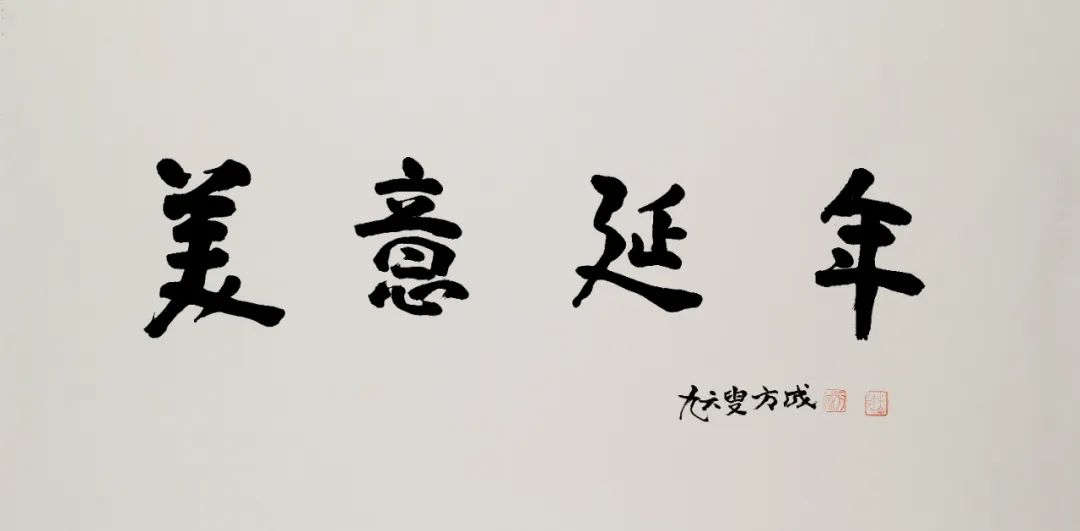 美意延年
九六叟方成